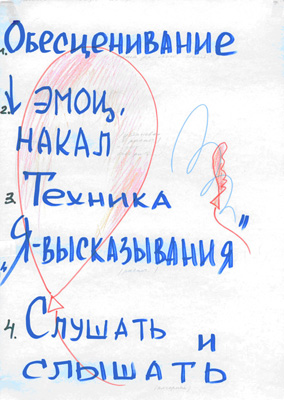 1. Обесценивание
2. ↓ эмоц.
накал
3. Техника
„Я-высказывания"
4. Слушать
и
слышать